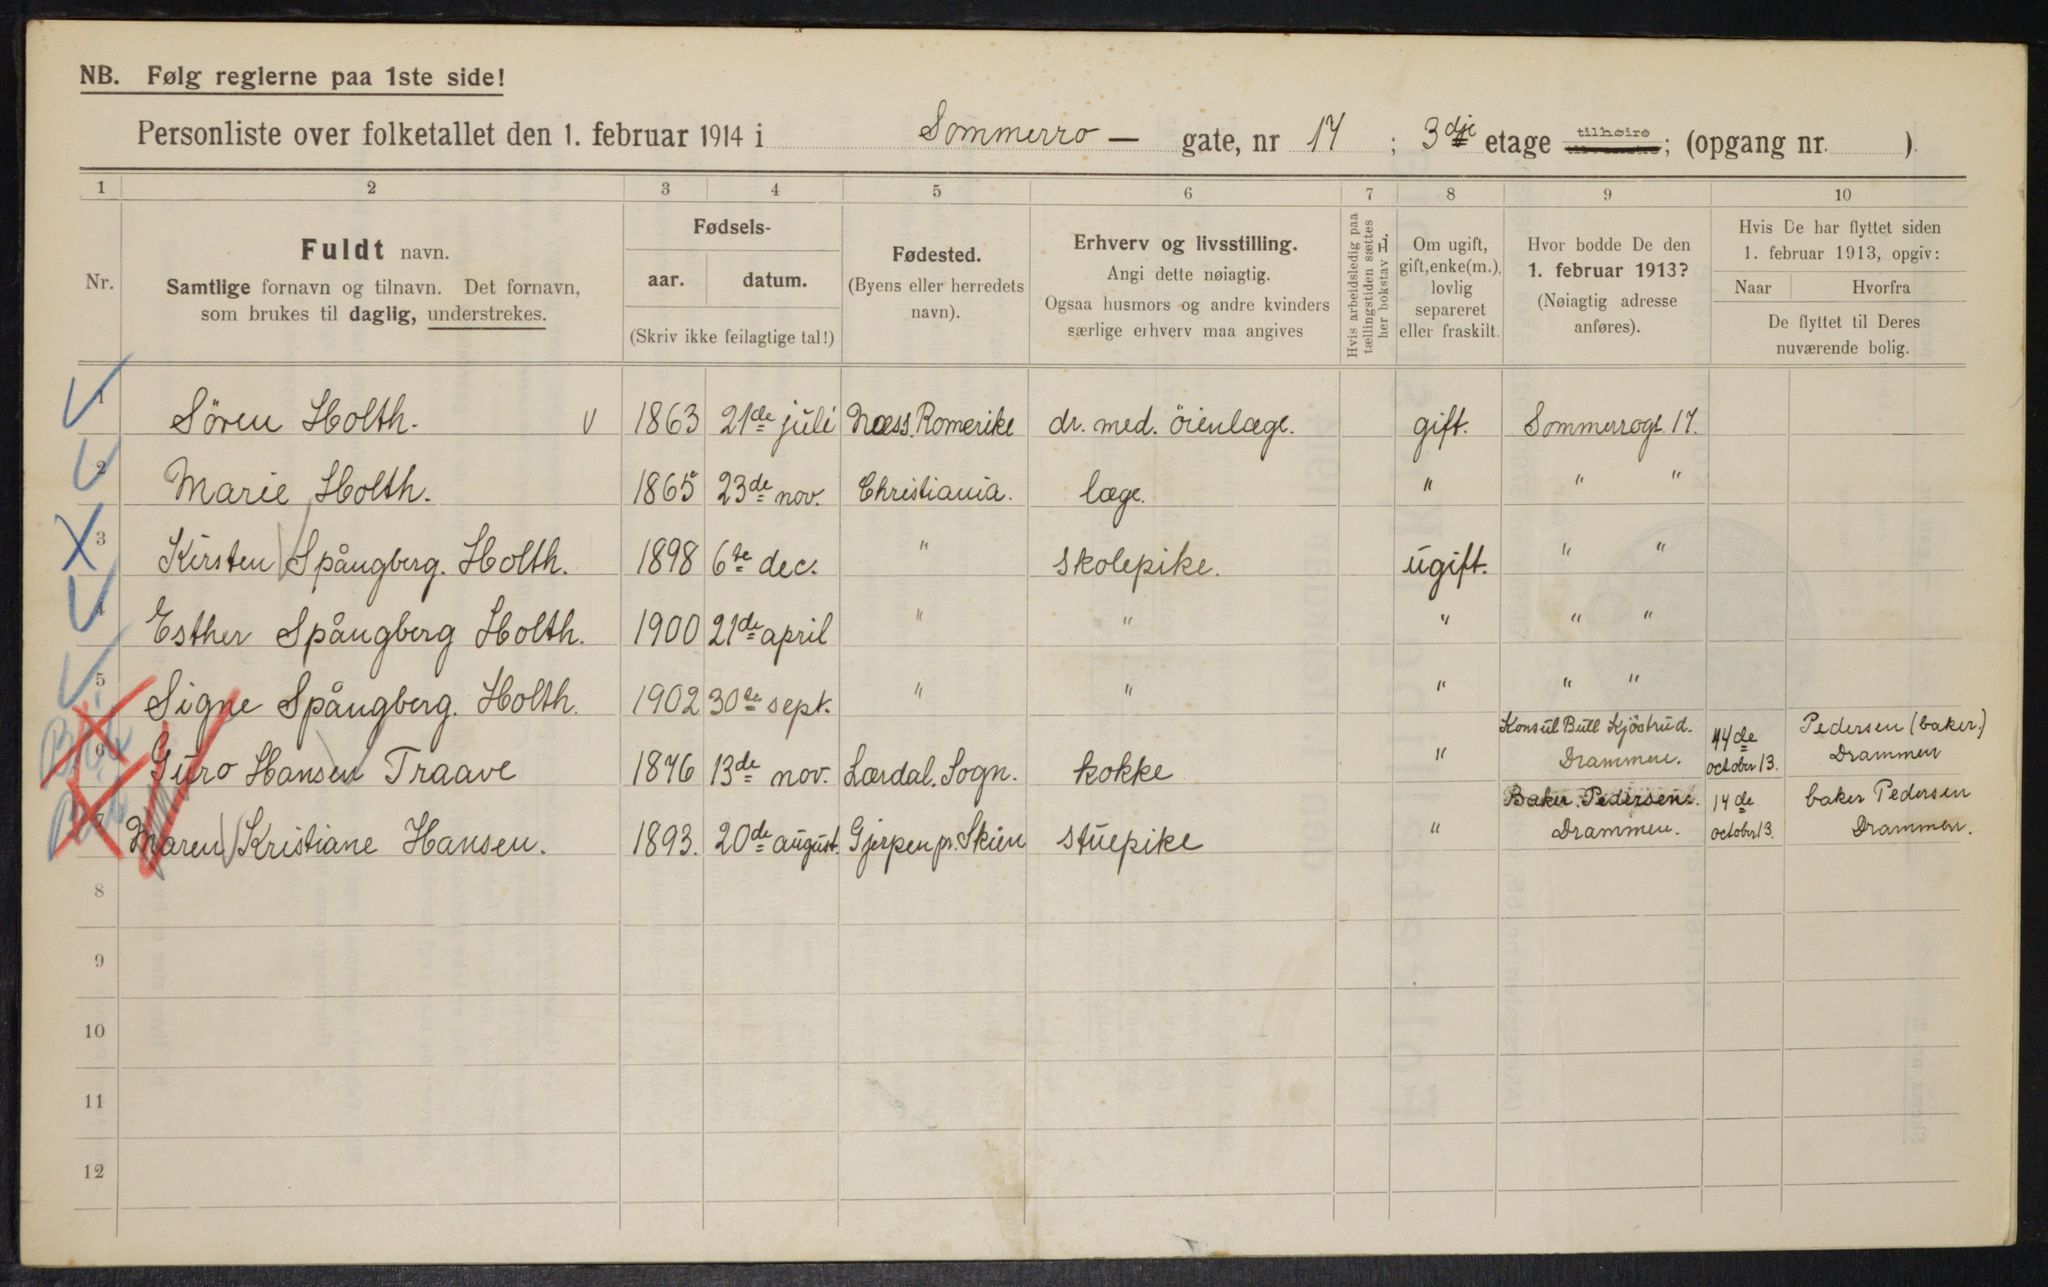 NB. Følg reglerne paa 1ste side!
Personliste over folketallet den 1. februar 1914 i Sommerro — gate, nr 17 ; 3dje etage tilhøire ; (opgang nr. ).
1 2 3 4 5 6 7 8 9 10
Nr.
Fuldt navn.
Samtlige fornavn og tilnavn. Det fornavn,
som brukes til daglig, understrekes.
Fødsels-
aar. datum.
(Skriv ikke feilagtige tal!)
Fødested.
(Byens eller herredets
navn).
Erhverv og livsstilling.
Angi dette nøiagtig.
Ogsaa husmors og andre kvinders
særlige erhverv maa angives
Hvis arbeidsledig paa
tællingstiden sættes
her bokstav L.
Om ugift,
gift, enke(m.),
lovlig
separeret
eller fraskilt.
Hvor bodde De den
1. februar 1913?
(Nøiagtig adresse
anføres).
Hvis De har flyttet siden
1. februar 1913, opgiv:
Naar Hvorfra
De flyttet til Deres
nuværende bolig.
1 Sören Holth. 1863 21de juli Næss. Romerike dr. med. öienlæge. gift. Sommerrogt. 17.
2 Marie Holth. 1865 23de nov. Christiania. læge. " " "
3 Kirsten Spångberg. Holth. 1898 6te dec. " skolepike. ugift. " "
4 Esther Spångberg Holth. 1900 21de april " " " " "
5 Signe Spångberg. Holth. 1902 30te sept. " " " " "
6 Guro Hansen Traave 1876 13de nov. Lærdal. Sogn. kokke " Konsul Bull Kjöstrud. Drammen. 14de october 13. Pedersen (baker.) Drammen
7 Maren Kristiane Hansen. 1893. 20de august. Gjerpen pr. Skien stuepike " Baker Pedersen. Drammen. 14de october 13. baker Pedersen Drammen.
8
9
10
11
12